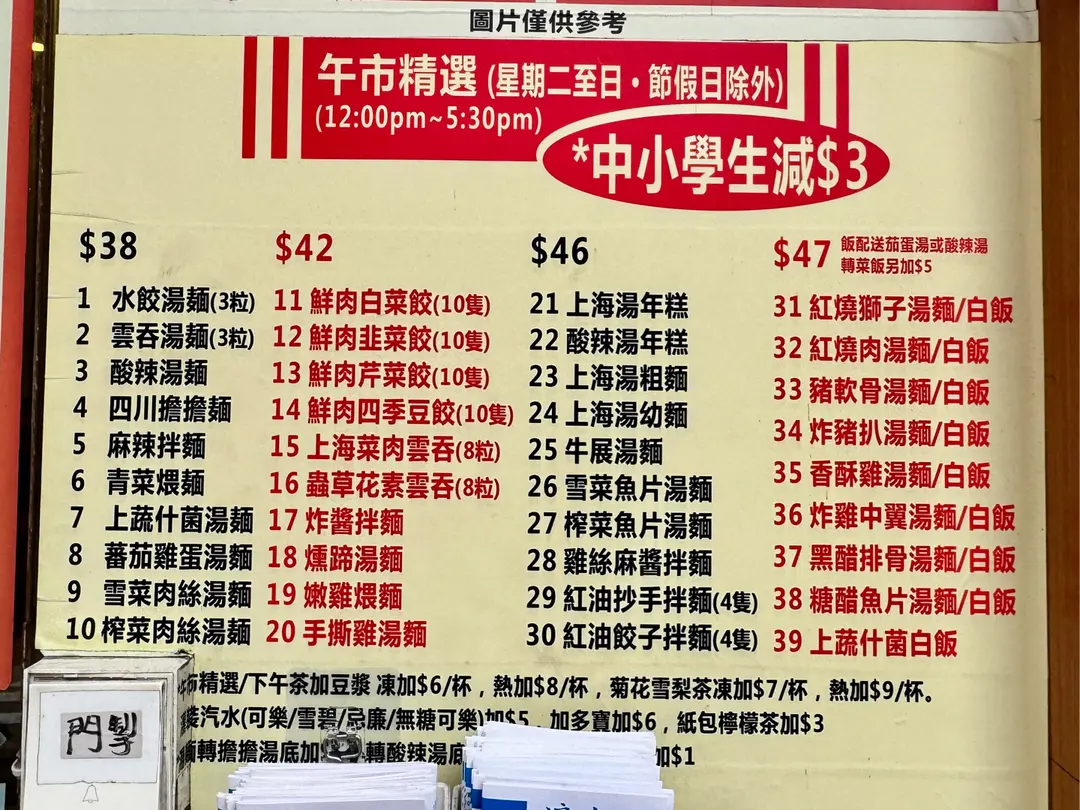 圖片僅供參考
午市精選 (星期二至日・節假日除外)
(12:00pm~5:30pm)
*中小學生減$3
$38
1 水餃湯麵(3粒)
2 雲吞湯麵(3粒)
3 酸辣湯麵
4 四川擔擔麵
5 麻辣拌麵
6 青菜煨麵
7 上蔬什菌湯麵
8 蕃茄雞蛋湯麵
9 雪菜肉絲湯麵
10 榨菜肉絲湯麵
$42
11 鮮肉白菜餃(10隻)
12 鮮肉韭菜餃(10隻)
13 鮮肉芹菜餃(10隻)
14 鮮肉四季豆餃(10隻)
15 上海菜肉雲吞(8粒)
16 蟲草花素雲吞(8粒)
17 炸醬拌麵
18 燻蹄湯麵
19 嫩雞煨麵
20 手撕雞湯麵
$46
21 上海湯年糕
22 酸辣湯年糕
23 上海湯粗麵
24 上海湯幼麵
25 牛展湯麵
26 雪菜魚片湯麵
27 榨菜魚片湯麵
28 雞絲麻醬拌麵
29 紅油抄手拌麵(4隻)
30 紅油餃子拌麵(4隻)
$47 飯配送茄蛋湯或酸辣湯
轉菜飯另加$5
31 紅燒獅子湯麵/白飯
32 紅燒肉湯麵/白飯
33 豬軟骨湯麵/白飯
34 炸豬扒湯麵/白飯
35 香酥雞湯麵/白飯
36 炸雞中翼湯麵/白飯
37 黑醋排骨湯麵/白飯
38 糖醋魚片湯麵/白飯
39 上蔬什菌白飯
市精選/下午茶加豆漿 凍加$6/杯，熱加$8/杯，菊花雪梨茶凍加$7/杯，熱加$9/杯。
汽水(可樂/雪碧/忌廉/無糖可樂)加$5，加多寶加$6，紙包檸檬茶加$3
轉擔擔湯底加 轉酸辣湯底 加$1
門掣